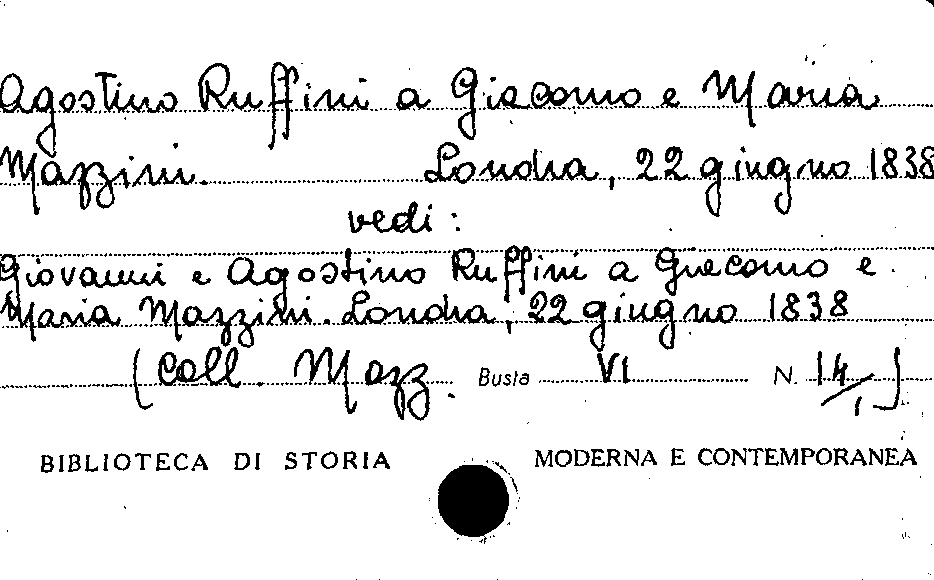 Agostino Ruffini a Giacomo e Maria
Mazzini. Londra, 22 giugno 1838
vedi:
Giovanni e Agostino Ruffini a Giacomo e
Maria Mazzini. Londra, 22 giugno 1838
(Coll. Mazz. Busta VI N. 14/1)
BIBLIOTECA DI STORIA MODERNA E CONTEMPORANEA